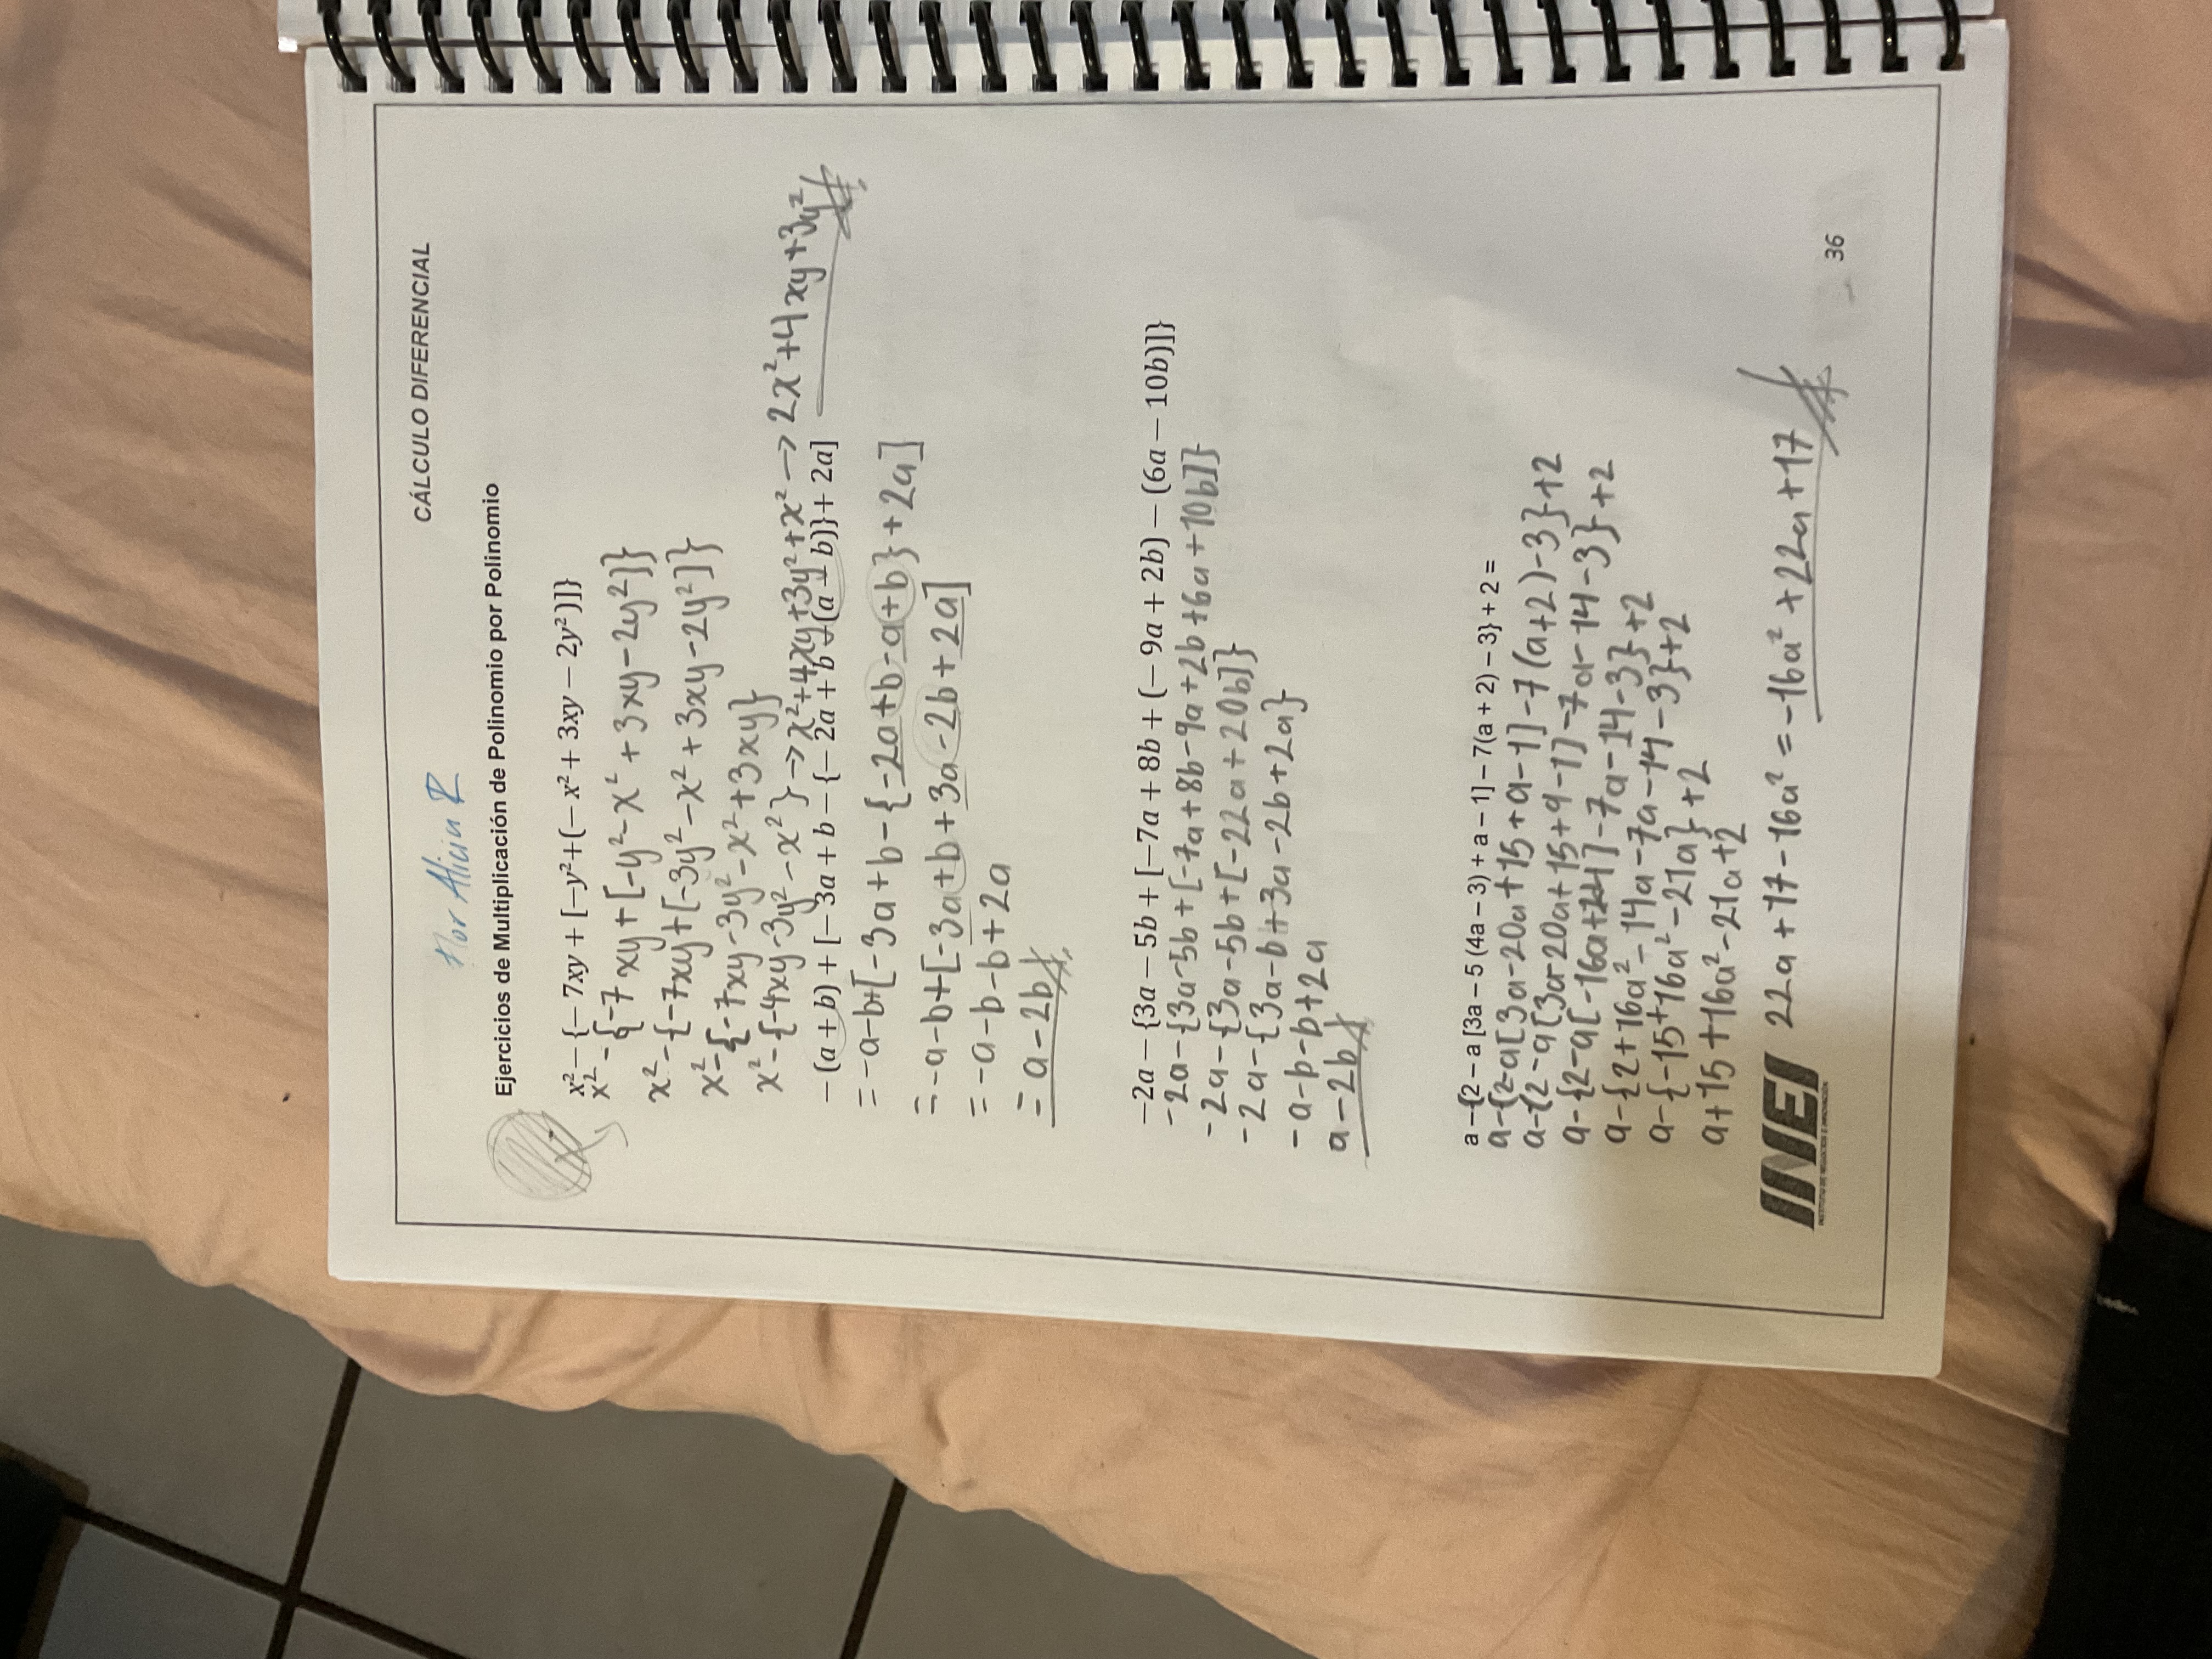 CÁLCULO DIFERENCIAL
Flor Alicia R
Ejercicios de Multiplicación de Polinomio por Polinomio
x²−{−7xy + [−y²+(−x² + 3xy − 2y²)]}
x²-{-7xy+[-y²-x²+3xy-2y²]}
x²-{-7xy+[-3y²-x²+3xy-2y²]}
x²-{-7xy-3y²-x²+3xy}
x²-{-4xy-3y²-x²}→x²+4xy+3y²+x²→2x²+4xy+3y²
−(a + b) + [−3a + b − {−2a + b −(a − b)}+ 2a]
=-a-b+[-3a+b-{-2a+b-a+b}+2a]
=-a-b+[-3a+b+3a-2b+2a]
=-a-b-b+2a
=a-2b
−2a − {3a − 5b + [−7a + 8b + (−9a + 2b) − (6a − 10b)]}
-2a-{3a-5b+[-7a+8b-9a+2b+6a+10b]}
-2a-{3a-5b+[-22a+20b]}
-2a-{3a-b+3a-2b+2a}
-a-b-b+2a
a-2b
a −{2 − a [3a − 5 (4a − 3) + a − 1] − 7(a + 2) − 3} + 2 =
a-{2-a[3a-20a+15+a-1]-7(a+2)-3}+2
a-{2-a[3a-20a+15+a-1]-7a-14-3}+2
a-{2-a[-16a+14]-7a-14-3}+2
a-{2+16a²-14a-7a-14-3}+2
a-{-15+16a²-21a}+2
a+15+16a²-21a+2
22a+17-16a²=-16a²+22a+17
INEI
36